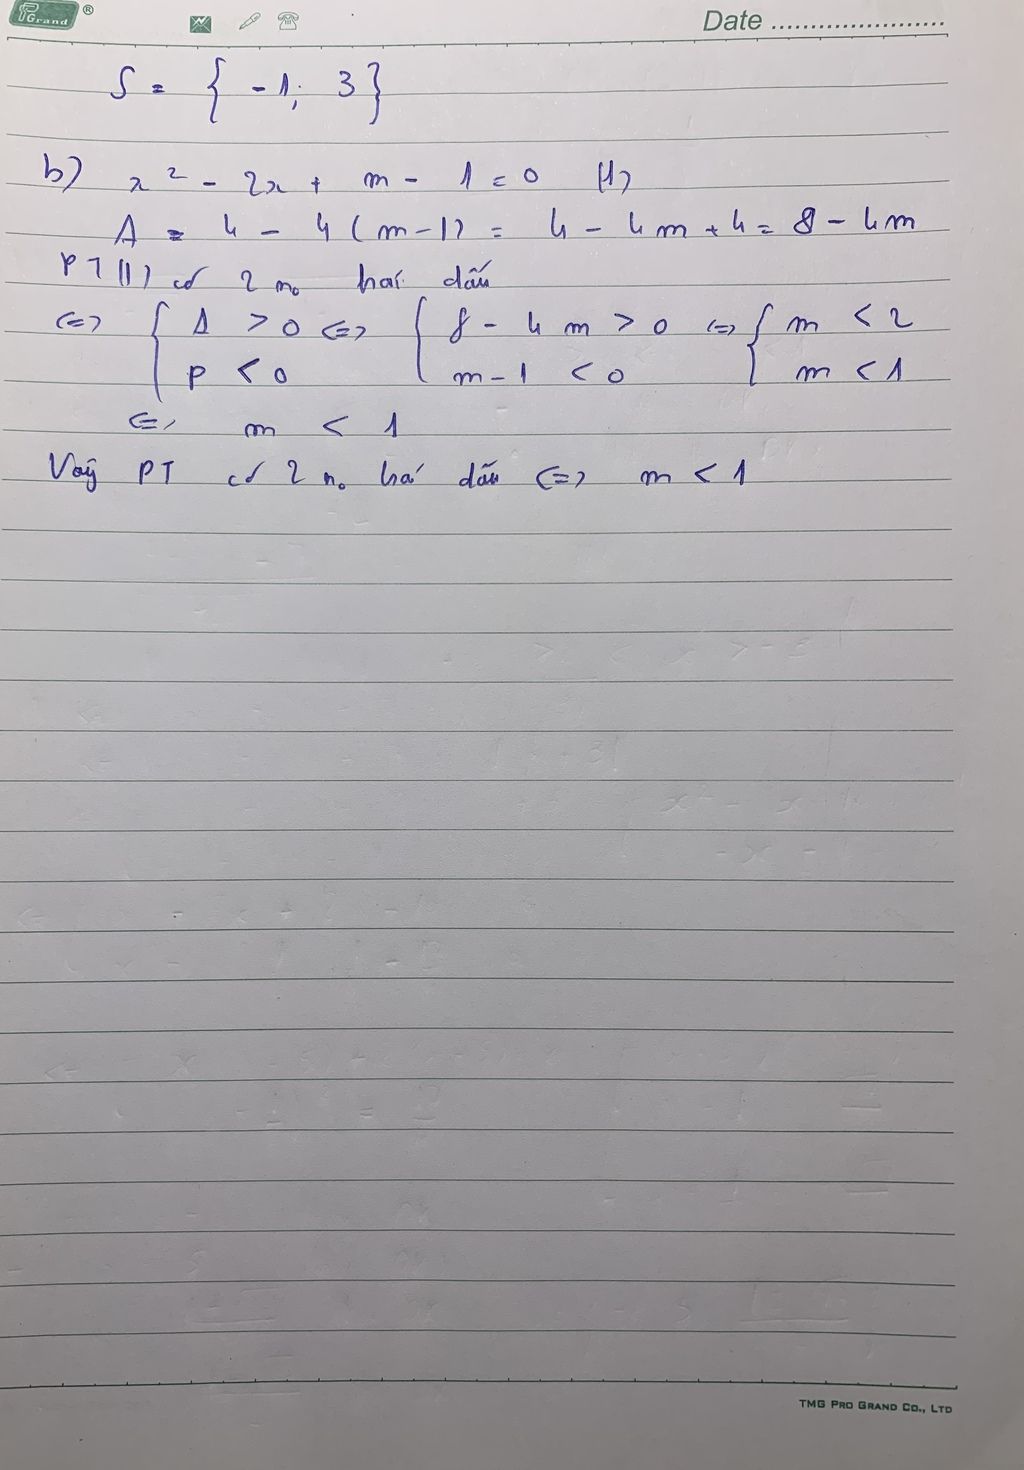 PGrand ®
Date ........................
S = { -1; 3 }
b) x² - 2x + m - 1 = 0 (1)
Δ = 4 - 4 (m-1) = 4 - 4m + 4 = 8 - 4m
PT (1) có 2 no trái dấu
<=> { Δ > 0 <=> { 8 - 4m > 0 <=> { m < 2
P < 0 m - 1 < 0 m < 1
<=> m < 1
Vậy PT có 2 no trái dấu <=> m < 1
TMG PRO GRAND CO., LTD